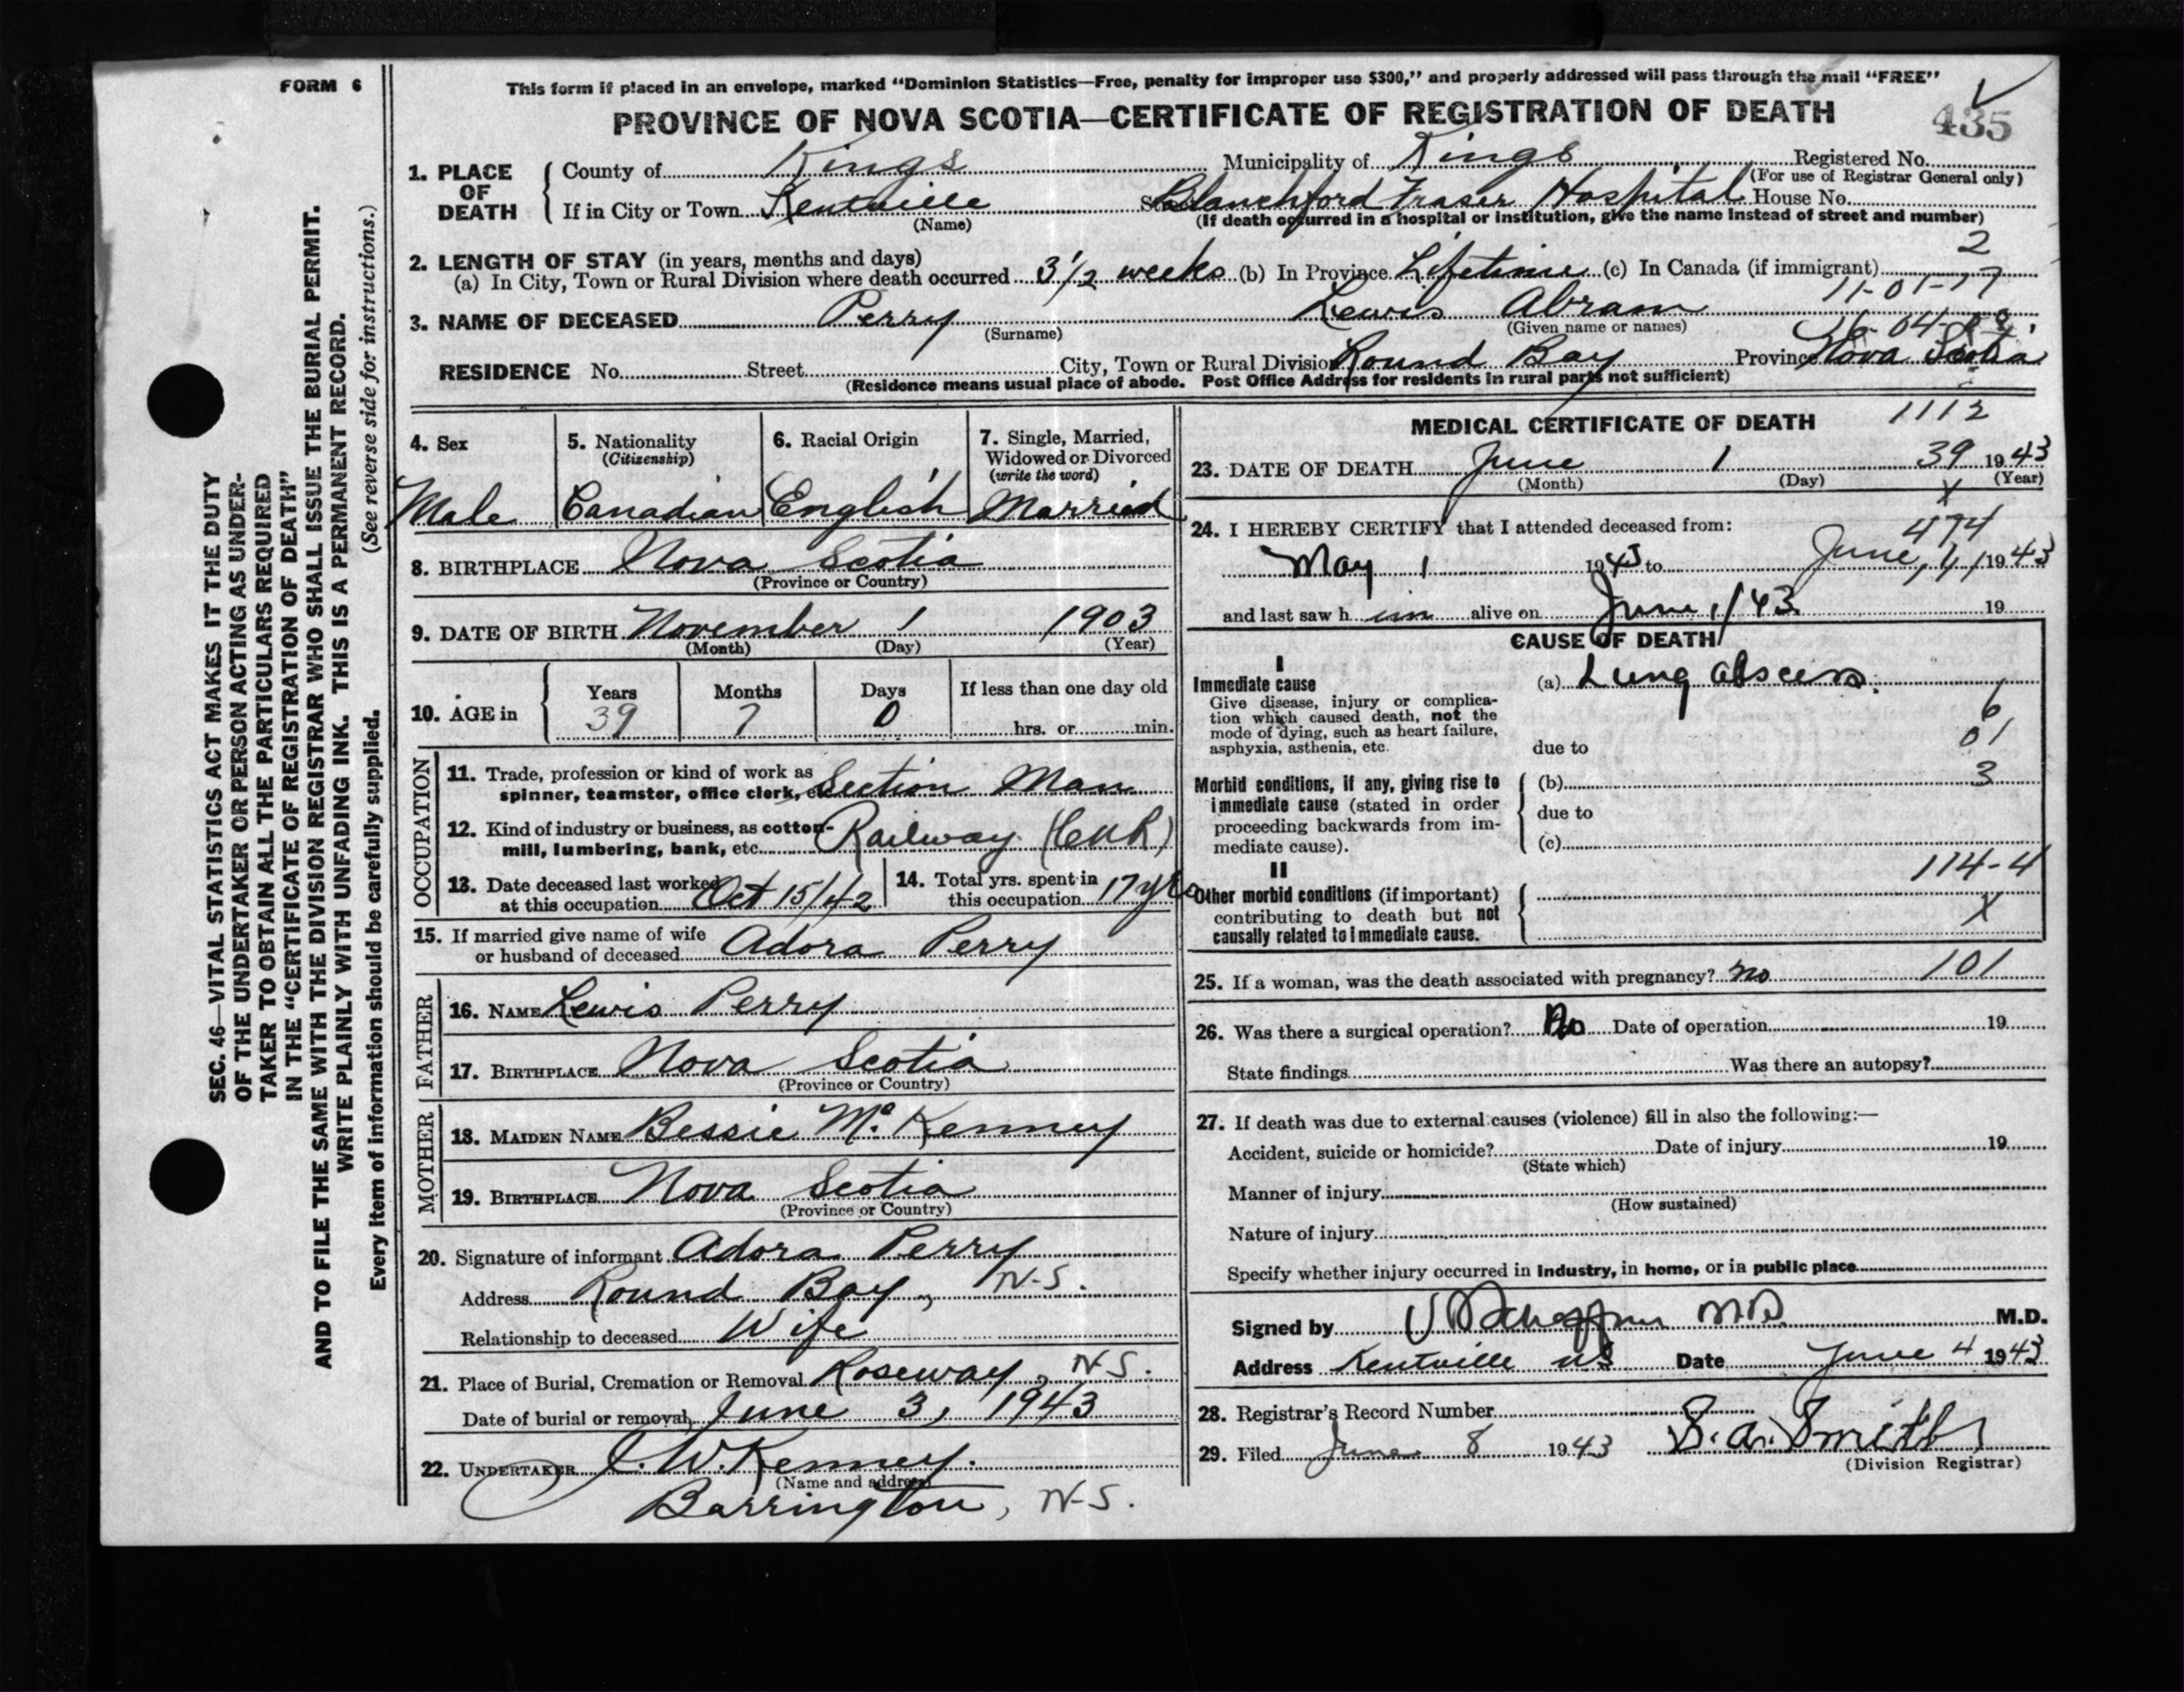 FORM 6
This form if placed in an envelope, marked “Dominion Statistics—Free, penalty for improper use $300,” and properly addressed will pass through the mail “FREE”
PROVINCE OF NOVA SCOTIA—CERTIFICATE OF REGISTRATION OF DEATH
435
1. PLACE OF DEATH
County of Kings Municipality of Kings Registered No.
(For use of Registrar General only)
If in City or Town Kentville Blanchford Fraser Hospital House No.
(Name) (If death occurred in a hospital or institution, give the name instead of street and number)
2. LENGTH OF STAY (in years, months and days) 2
(a) In City, Town or Rural Division where death occurred 3 1/2 weeks (b) In Province Lifetime (c) In Canada (if immigrant)
11-01-17
3. NAME OF DECEASED Perry Lewis Abram
(Surname) (Given name or names)
RESIDENCE No. Street City, Town or Rural Division Round Bay Province Nova Scotia
(Residence means usual place of abode. Post Office Address for residents in rural parts not sufficient)
4. Sex
Male
5. Nationality
(Citizenship)
Canadian
6. Racial Origin
English
7. Single, Married,
Widowed or Divorced
(write the word)
Married
8. BIRTHPLACE Nova Scotia
(Province or Country)
9. DATE OF BIRTH November 1 1903
(Month) (Day) (Year)
10. AGE in
Years Months Days If less than one day old
39 7 0 hrs. or min.
OCCUPATION
11. Trade, profession or kind of work as
spinner, teamster, office clerk, etc. Section Man
12. Kind of industry or business, as cotton-
mill, lumbering, bank, etc. Railway (CNR)
13. Date deceased last worked
at this occupation Oct 15/42
14. Total yrs. spent in
this occupation 17 yrs
15. If married give name of wife
or husband of deceased Adora Perry
FATHER
16. NAME Lewis Perry
17. BIRTHPLACE Nova Scotia
(Province or Country)
MOTHER
18. MAIDEN NAME Bessie Mc Kenney
19. BIRTHPLACE Nova Scotia
(Province or Country)
20. Signature of informant Adora Perry
Address Round Bay, N.S.
Relationship to deceased Wife
21. Place of Burial, Cremation or Removal Roseway, N.S.
Date of burial or removal June 3, 1943
22. UNDERTAKER J. W. Kenney.
(Name and address)
Barrington, N.S.
MEDICAL CERTIFICATE OF DEATH 1112
23. DATE OF DEATH June 1 39 1943
(Month) (Day) (Year)
X
24. I HEREBY CERTIFY that I attended deceased from: 474
May 1 1943 to June, 1, 1943
and last saw him alive on June 1/43 19
CAUSE OF DEATH
I
Immediate cause (a) Lung abscess.
Give disease, injury or complica-
tion which caused death, not the
mode of dying, such as heart failure,
asphyxia, asthenia, etc. due to
6
01
3
Morbid conditions, if any, giving rise to (b)
immediate cause (stated in order due to
proceeding backwards from im-
mediate cause). (c)
114-4
II
Other morbid conditions (if important)
contributing to death but not X
causally related to immediate cause.
25. If a woman, was the death associated with pregnancy? no 101
26. Was there a surgical operation? No Date of operation 19
State findings Was there an autopsy?
27. If death was due to external causes (violence) fill in also the following:—
Accident, suicide or homicide? Date of injury 19
(State which)
Manner of injury
(How sustained)
Nature of injury
Specify whether injury occurred in industry, in home, or in public place
Signed by M.D. M.D.
Address Kentville NS Date June 4 1943
28. Registrar’s Record Number
29. Filed June 8 1943 S. A. Smith
(Division Registrar)
SEC. 46—VITAL STATISTICS ACT MAKES IT THE DUTY
OF THE UNDERTAKER OR PERSON ACTING AS UNDER-
TAKER TO OBTAIN ALL THE PARTICULARS REQUIRED
IN THE “CERTIFICATE OF REGISTRATION OF DEATH”
AND TO FILE THE SAME WITH THE DIVISION REGISTRAR WHO SHALL ISSUE THE BURIAL PERMIT.
WRITE PLAINLY WITH UNFADING INK. THIS IS A PERMANENT RECORD.
Every item of information should be carefully supplied. (See reverse side for instructions.)